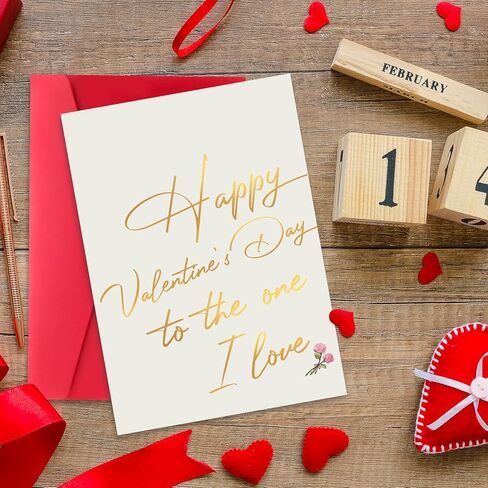 Happy
Valentine's Day
to the one
I love
FEBRUARY
1 4